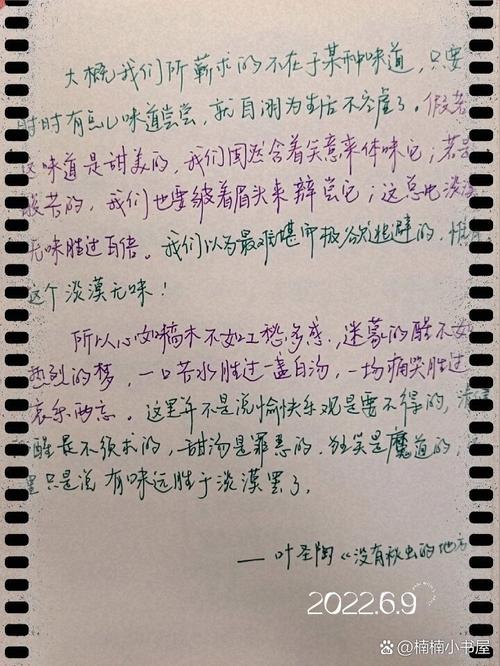 大概我们所蕲求的不在于某种味道,只要
时时有点儿味道尝尝,就自诩为生活不空虚了。假若
这味道是甜美的,我们固然含着笑意来体味它;若是
酸苦的,我们也要皱着眉头来辨尝它;这总比淡漠
无味胜过百倍。我们以为最难堪而极欲逃避的,惟有
这个淡漠无味!
所以心如槁木不如工愁多感,迷蒙的醒不如
热烈的梦,一口苦水胜过一盏白汤,一场痛哭胜过
哀乐两忘。这里并不是说愉快乐观是要不得的,清
醒是不须求的,甜汤是罪恶的,狂笑是魔道的
只是说有味远胜于淡漠罢了。
——叶圣陶《没有秋虫的地方
2022.6.9
@楠楠小书屋